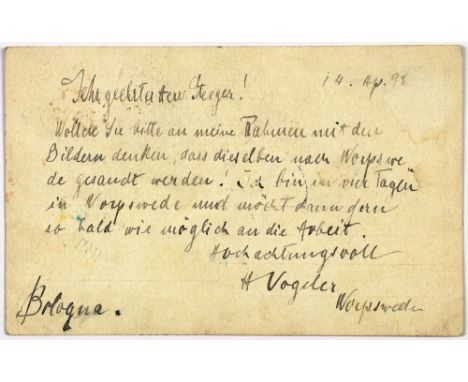 14. Ap. 98
Sehr geehrter Herr Steeger!
Wollen Sie bitte an meine Rahmen mit den
Bildern denken, dass dieselben nach Worpswe
de gesandt werden! Ich bin in vier Tagen
in Worpswede und möcht dann gern
so bald wie möglich an die Arbeit.
Hochachtungsvoll
H Vogeler
Worpswede
Bologna.